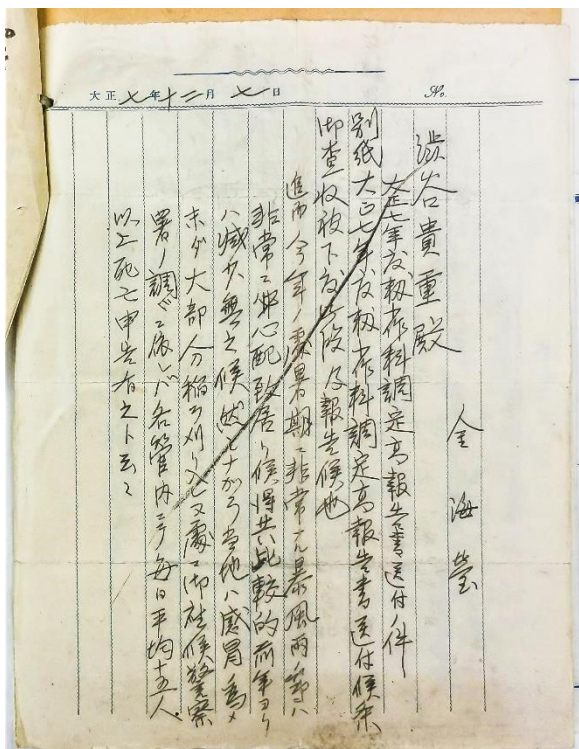 大正七年十二月七日
No.
金海莹
渋谷貴重殿
大正七年度籾小作料調定高報告書送付ノ件
別紙大正七年度籾小作料調定高報告書送付候条
御査収被下度此段及報告候也
追而今年ノ處暑期ニ非常ナル暴風雨等ハ
非常ニ心配致居リ候得共比較的前年ヨリ
ハ減少無之候然シナガラ当地ハ感冒ノ為メ
未ダ大部分稲ヲ刈リ込マヌ處ニ御座候警察
署ノ調ニ依レバ各管内ニテ毎日平均十五人
以上死亡申告有之ト云々